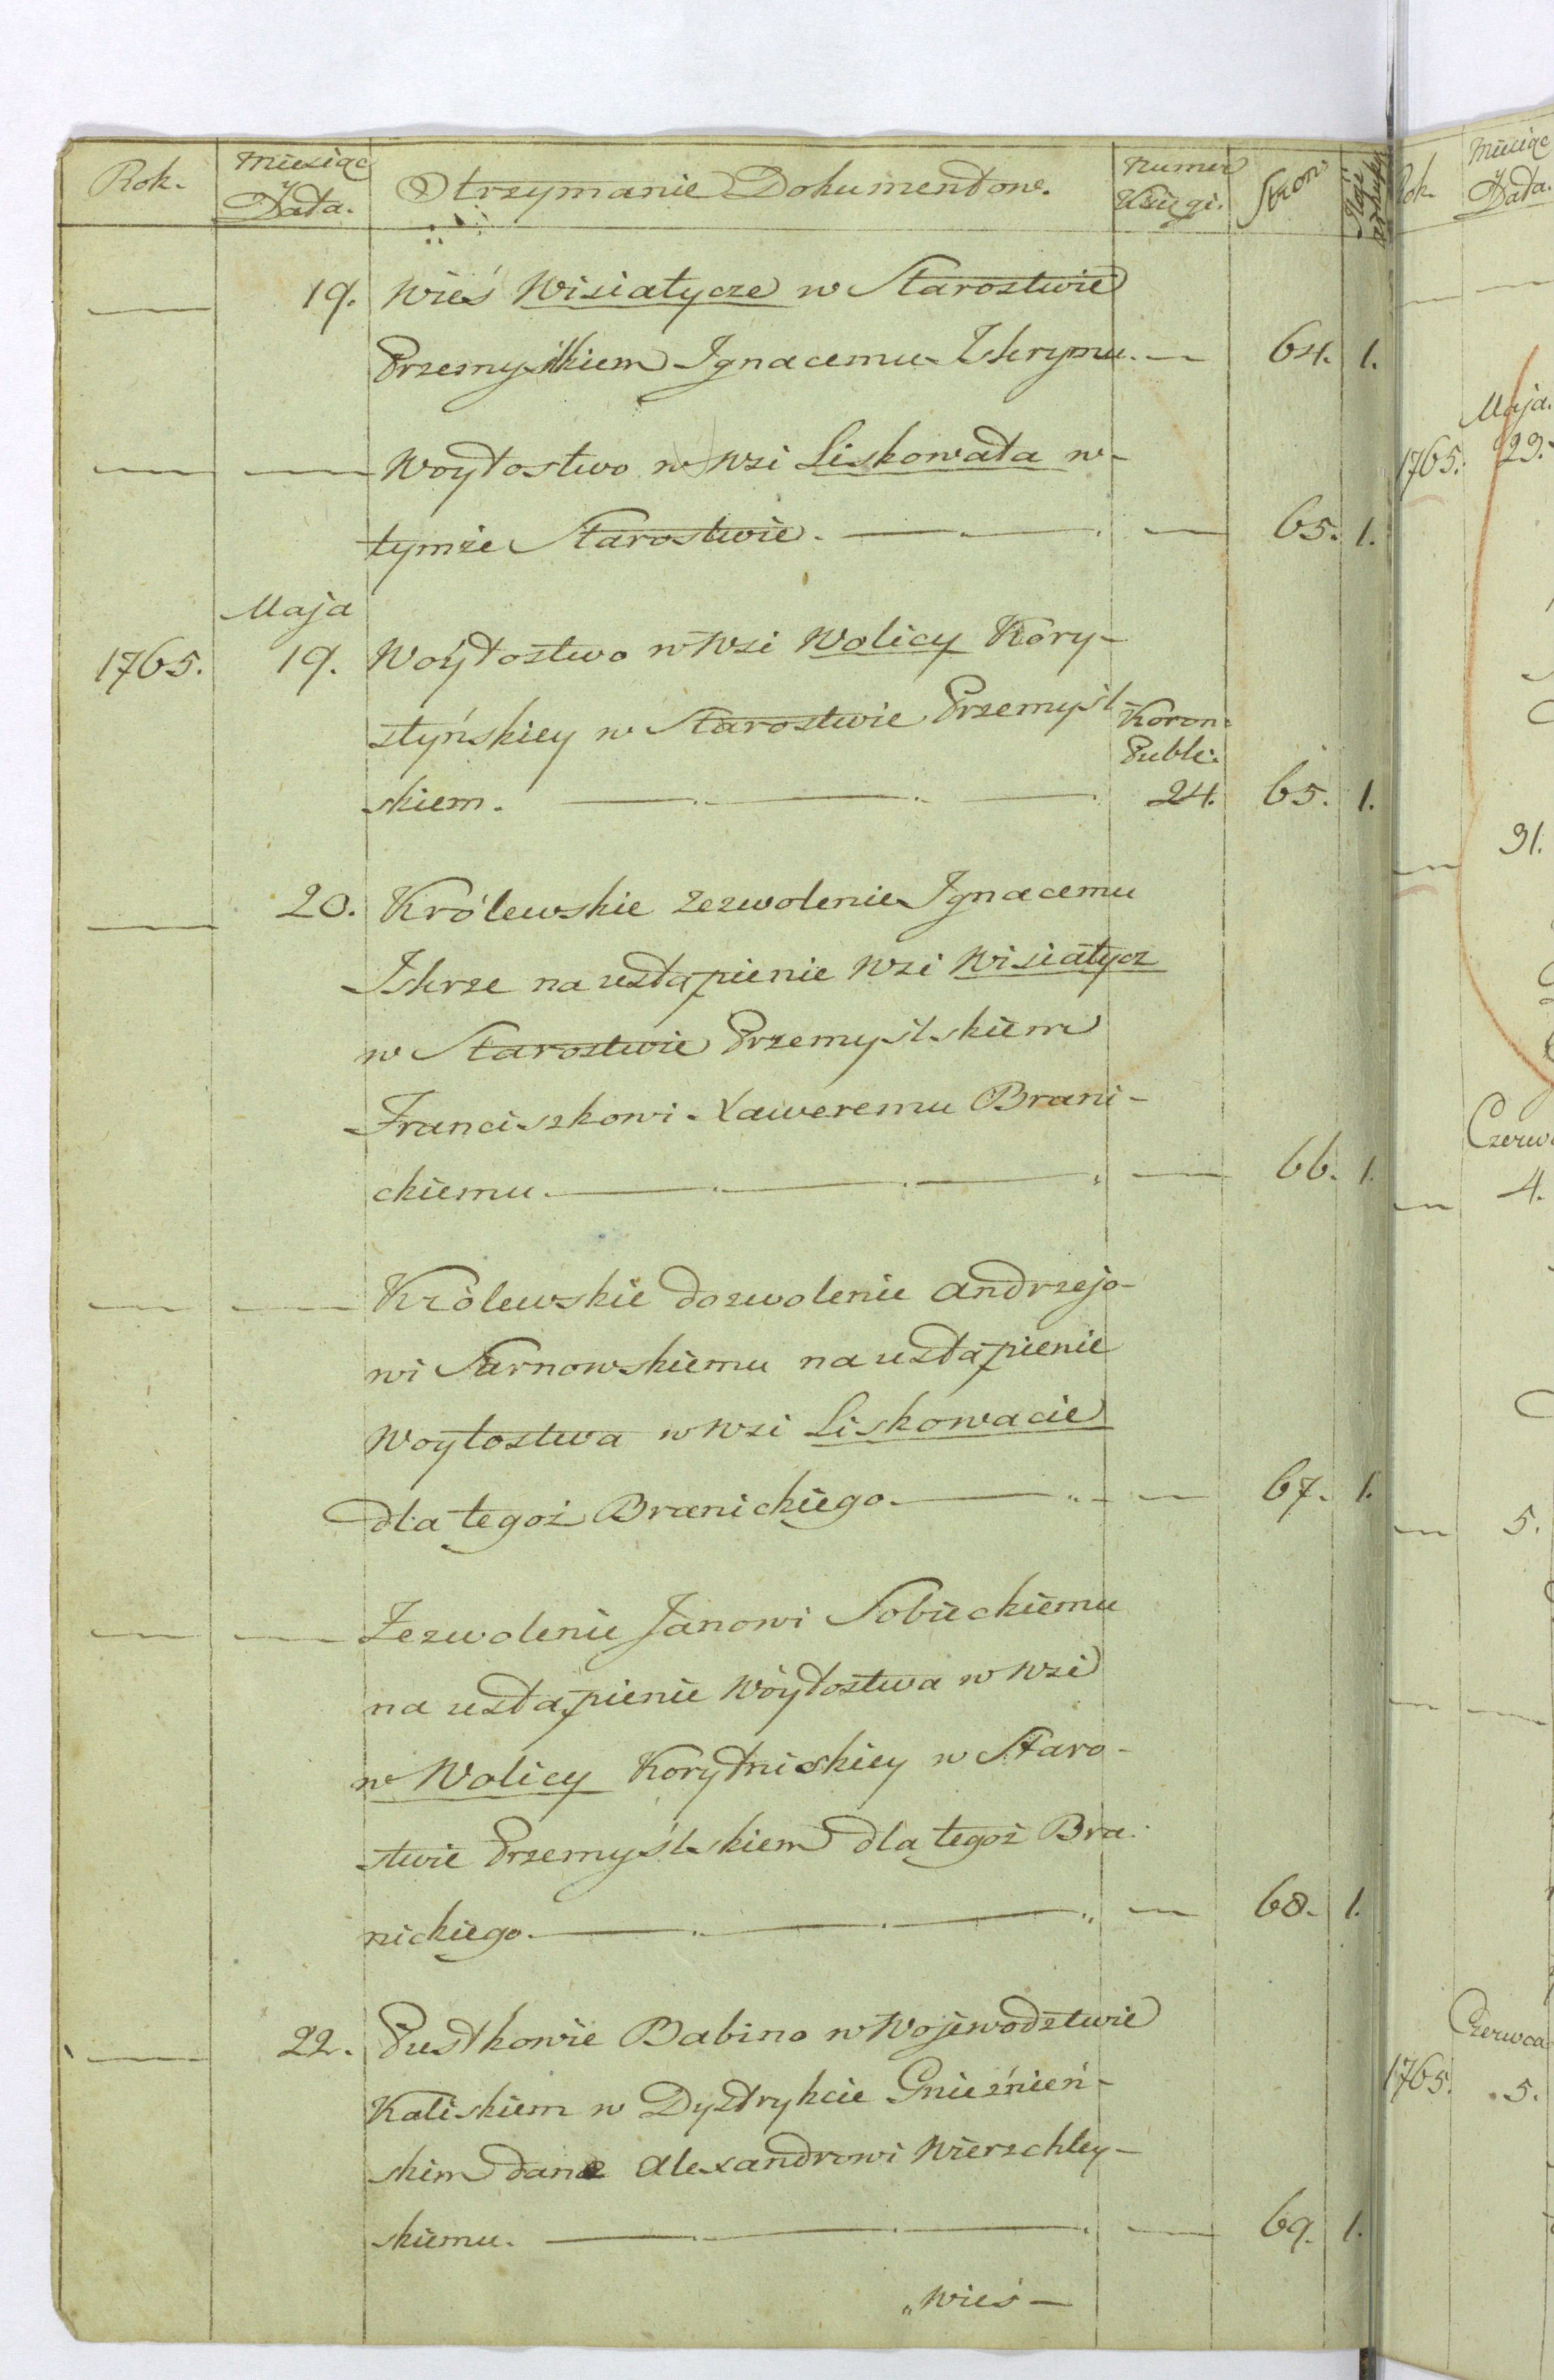 Rok. Miesiąc y Data. Otrzymanie Dokumentow. Numer Księgi. Stron.
19. Wieś Wisiatycze w Starostwie
Przemyślkiem Ignacemu Iskrymu. — 64. 1.
— — Woytostwo w Wsi Liskowata w-
tymże Starostwie. — — 65. 1.
Maja
1765. 19. Woytostwo w Wsi Wolicy Kory-
styńskiey w Starostwie Przemyśl Koron:
Publ:
skiem. — 24. 65. 1.
— 20. Królewskie zezwolenie Ignacemu
Iskrze na ustąpienie Wsi Wisiatycz
w Starostwie Przemyślskiem
Franciszkowi Xaweremu Brani-
ckiemu. — — 66. 1.
— — Królewskie dozwolenie Andrzejo-
wi Tarnowskiemu na ustąpienie
Woytostwa w Wsi Liskowacie
dla tegoż Branickiego. — — 67. 1.
— — Zezwolenie Janowi Sobieckiemu
na ustąpienie Wóytostwa w Wsi
w Wolicy Korytniskiey w Staro-
stwie Przemyślskiem dla tegoż Bra:
nickiego. — — 68. 1.
— 22. Pustkowie Babino w Wojewodztwie
Kaliskiem w Dystrykcie Gnieźnień-
skim dane Alexandrowi Wierzchley-
skiemu. — — 69. 1.
„Wieś —
Rok. Miesiąc y Data.
Maja.
1765. 29.
31.
Czerw
4.
5.
Czerwca
1765. 5.